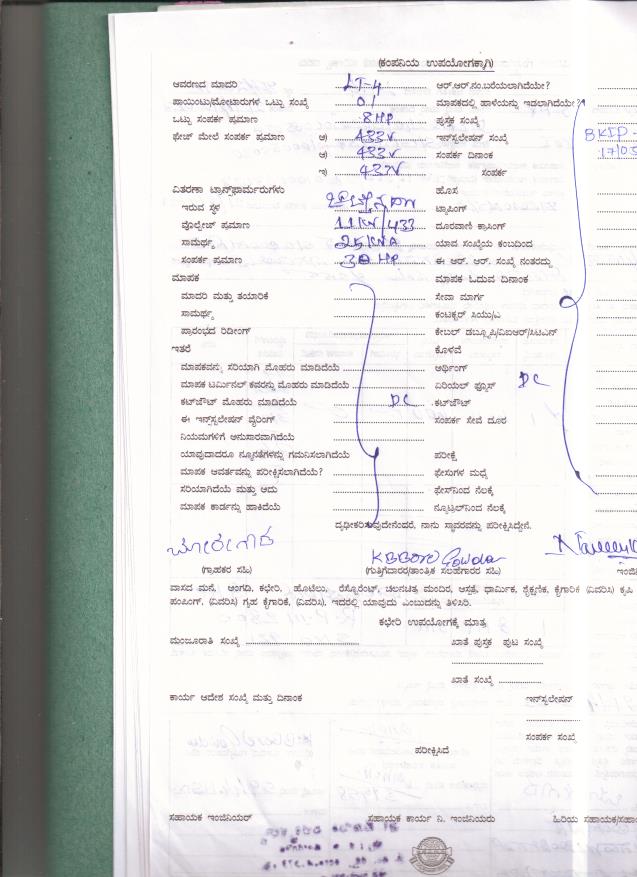 (ಕಂಪನಿಯ ಉಪಯೋಗಕ್ಕಾಗಿ)
ಆವರಣದ ಮಾದರಿ LT-4 ಆರ್.ಆರ್.ನಂ.ಬರೆಯಲಾಗಿದೆಯೇ?
ಪಾಯಿಂಟು/ಮೋಟಾರುಗಳ ಒಟ್ಟು ಸಂಖ್ಯೆ 01 ಮಾಪಕದಲ್ಲಿ ಹಾಳೆಯನ್ನು ಇಡಲಾಗಿದೆಯೇ?
ಒಟ್ಟು ಸಂಪರ್ಕ ಪ್ರಮಾಣ 8HP ಪುಸ್ತಕ ಸಂಖ್ಯೆ
ಫೇಜ್ ಮೇಲೆ ಸಂಪರ್ಕ ಪ್ರಮಾಣ ಅ) 433V ಇನ್‌ಸ್ಟಲೇಷನ್ ಸಂಖ್ಯೆ BKIP-
ಆ) 433V ಸಂಪರ್ಕ ದಿನಾಂಕ 17/03
ಇ) ಸಂಪರ್ಕ
ವಿತರಣಾ ಟ್ರಾನ್ಸ್‌ಫಾರ್ಮರುಗಳು ಹೊಸ
ಇರುವ ಸ್ಥಳ ಟ್ಯಾಪಿಂಗ್
ವೋಲ್ಟೇಜ್ ಪ್ರಮಾಣ 11KV/433 ದೂರವಾಣಿ ಕ್ರಾಸಿಂಗ್
ಸಾಮರ್ಥ್ಯ 25KVA ಯಾವ ಸಂಖ್ಯೆಯ ಕಂಬದಿಂದ
ಸಂಪರ್ಕ ಪ್ರಮಾಣ 30 HP ಈ ಆರ್. ಆರ್. ಸಂಖ್ಯೆ ನಂತರದ್ದು
ಮಾಪಕ ಮಾಪಕ ಓದುವ ದಿನಾಂಕ
ಮಾದರಿ ಮತ್ತು ತಯಾರಿಕೆ ಸೇವಾ ಮಾರ್ಗ
ಸಾಮರ್ಥ್ಯ ಕಂಟಕ್ಟರ್ ಸಿಯು/ಎ
ಪ್ರಾರಂಭದ ರಿಡೀಂಗ್ ಕೇಬಲ್ ಡಬ್ಲ್ಯೂಪಿ/ವಿಐಆರ್/ಸಿಟಿಎಸ್
ಇತರೆ ಕೊಳವೆ
ಮಾಪಕವನ್ನು ಸರಿಯಾಗಿ ಮೊಹರು ಮಾಡಿದೆಯೆ ಅರ್ಥಿಂಗ್
ಮಾಪಕ ಟರ್ಮಿನಲ್ ಕವರನ್ನು ಮೊಹರು ಮಾಡಿದೆಯೆ ಏರಿಯಲ್ ಫ್ಯೂಸ್ DC
ಕಟ್‌ಔಟ್ ಮೊಹರು ಮಾಡಿದೆಯೆ DC ಕಟ್‌ಔಟ್
ಈ ಇನ್‌ಸ್ಟಲೇಷನ್ ವೈರಿಂಗ್ ಸಂಪರ್ಕ ಸೇವೆ ದೂರ
ನಿಯಮಗಳಿಗೆ ಅನುಸಾರವಾಗಿದೆಯೆ
ಯಾವುದಾದರೂ ನ್ಯೂನತೆಗಳನ್ನು ಗಮನಿಸಲಾಗಿದೆಯೆ ಪರೀಕ್ಷೆ
ಮಾಪಕ ಆವರ್ತವನ್ನು ಪರೀಕ್ಷಿಸಲಾಗಿದೆಯೆ? ಫೇಸುಗಳ ಮಧ್ಯೆ
ಸರಿಯಾಗಿದೆಯೆ ಮತ್ತು ಆದು ಫೇಸ್‌ನಿಂದ ನೆಲಕ್ಕೆ
ಮಾಪಕ ಕಾರ್ಡನ್ನು ಹಾಕಿದೆಯೆ ನ್ಯೂಟ್ರಲ್‌ನಿಂದ ನೆಲಕ್ಕೆ
ದೃಢೀಕರಿಸುವುದೇನೆಂದರೆ, ನಾನು ಸ್ಥಾವರವನ್ನು ಪರೀಕ್ಷಿಸಿದ್ದೇನೆ.
(ಗ್ರಾಹಕರ ಸಹಿ) (ಗುತ್ತಿಗೆದಾರರ/ತಾಂತ್ರಿಕ ಸಲಹೆಗಾರರ ಸಹಿ)
ವಾಸದ ಮನೆ, ಅಂಗಡಿ, ಕಛೇರಿ, ಹೊಟೇಲು, ರೆಸ್ಟೋರೆಂಟ್, ಚಲನಚಿತ್ರ ಮಂದಿರ, ಆಸ್ಪತ್ರೆ, ಧಾರ್ಮಿಕ, ಶೈಕ್ಷಣಿಕ, ಕೈಗಾರಿಕೆ (ವಿವರಿಸಿ) ಕೃಷಿ
ಪಂಪಿಂಗ್, (ವಿವರಿಸಿ) ಗೃಹ ಕೈಗಾರಿಕೆ, (ವಿವರಿಸಿ), ಇದರಲ್ಲಿ ಯಾವುದು ಎಂಬುದನ್ನು ತಿಳಿಸಿರಿ.
ಕಛೇರಿ ಉಪಯೋಗಕ್ಕೆ ಮಾತ್ರ
ಮಂಜೂರಾತಿ ಸಂಖ್ಯೆ ಖಾತೆ ಪುಸ್ತಕ ಪುಟ ಸಂಖ್ಯೆ
ಖಾತೆ ಸಂಖ್ಯೆ
ಕಾರ್ಯ ಆದೇಶ ಸಂಖ್ಯೆ ಮತ್ತು ದಿನಾಂಕ ಇನ್‌ಸ್ಟಲೇಷನ್
ಸಂಪರ್ಕ ಸಂಖ್ಯೆ
ಪರೀಕ್ಷಿಸಿದೆ
ಸಹಾಯಕ ಇಂಜಿನಿಯರ್ ಸಹಾಯಕ ಕಾರ್ಯ ನಿ. ಇಂಜಿನಿಯರು ಹಿರಿಯ ಸಹಾಯಕ/ಸಹಾ